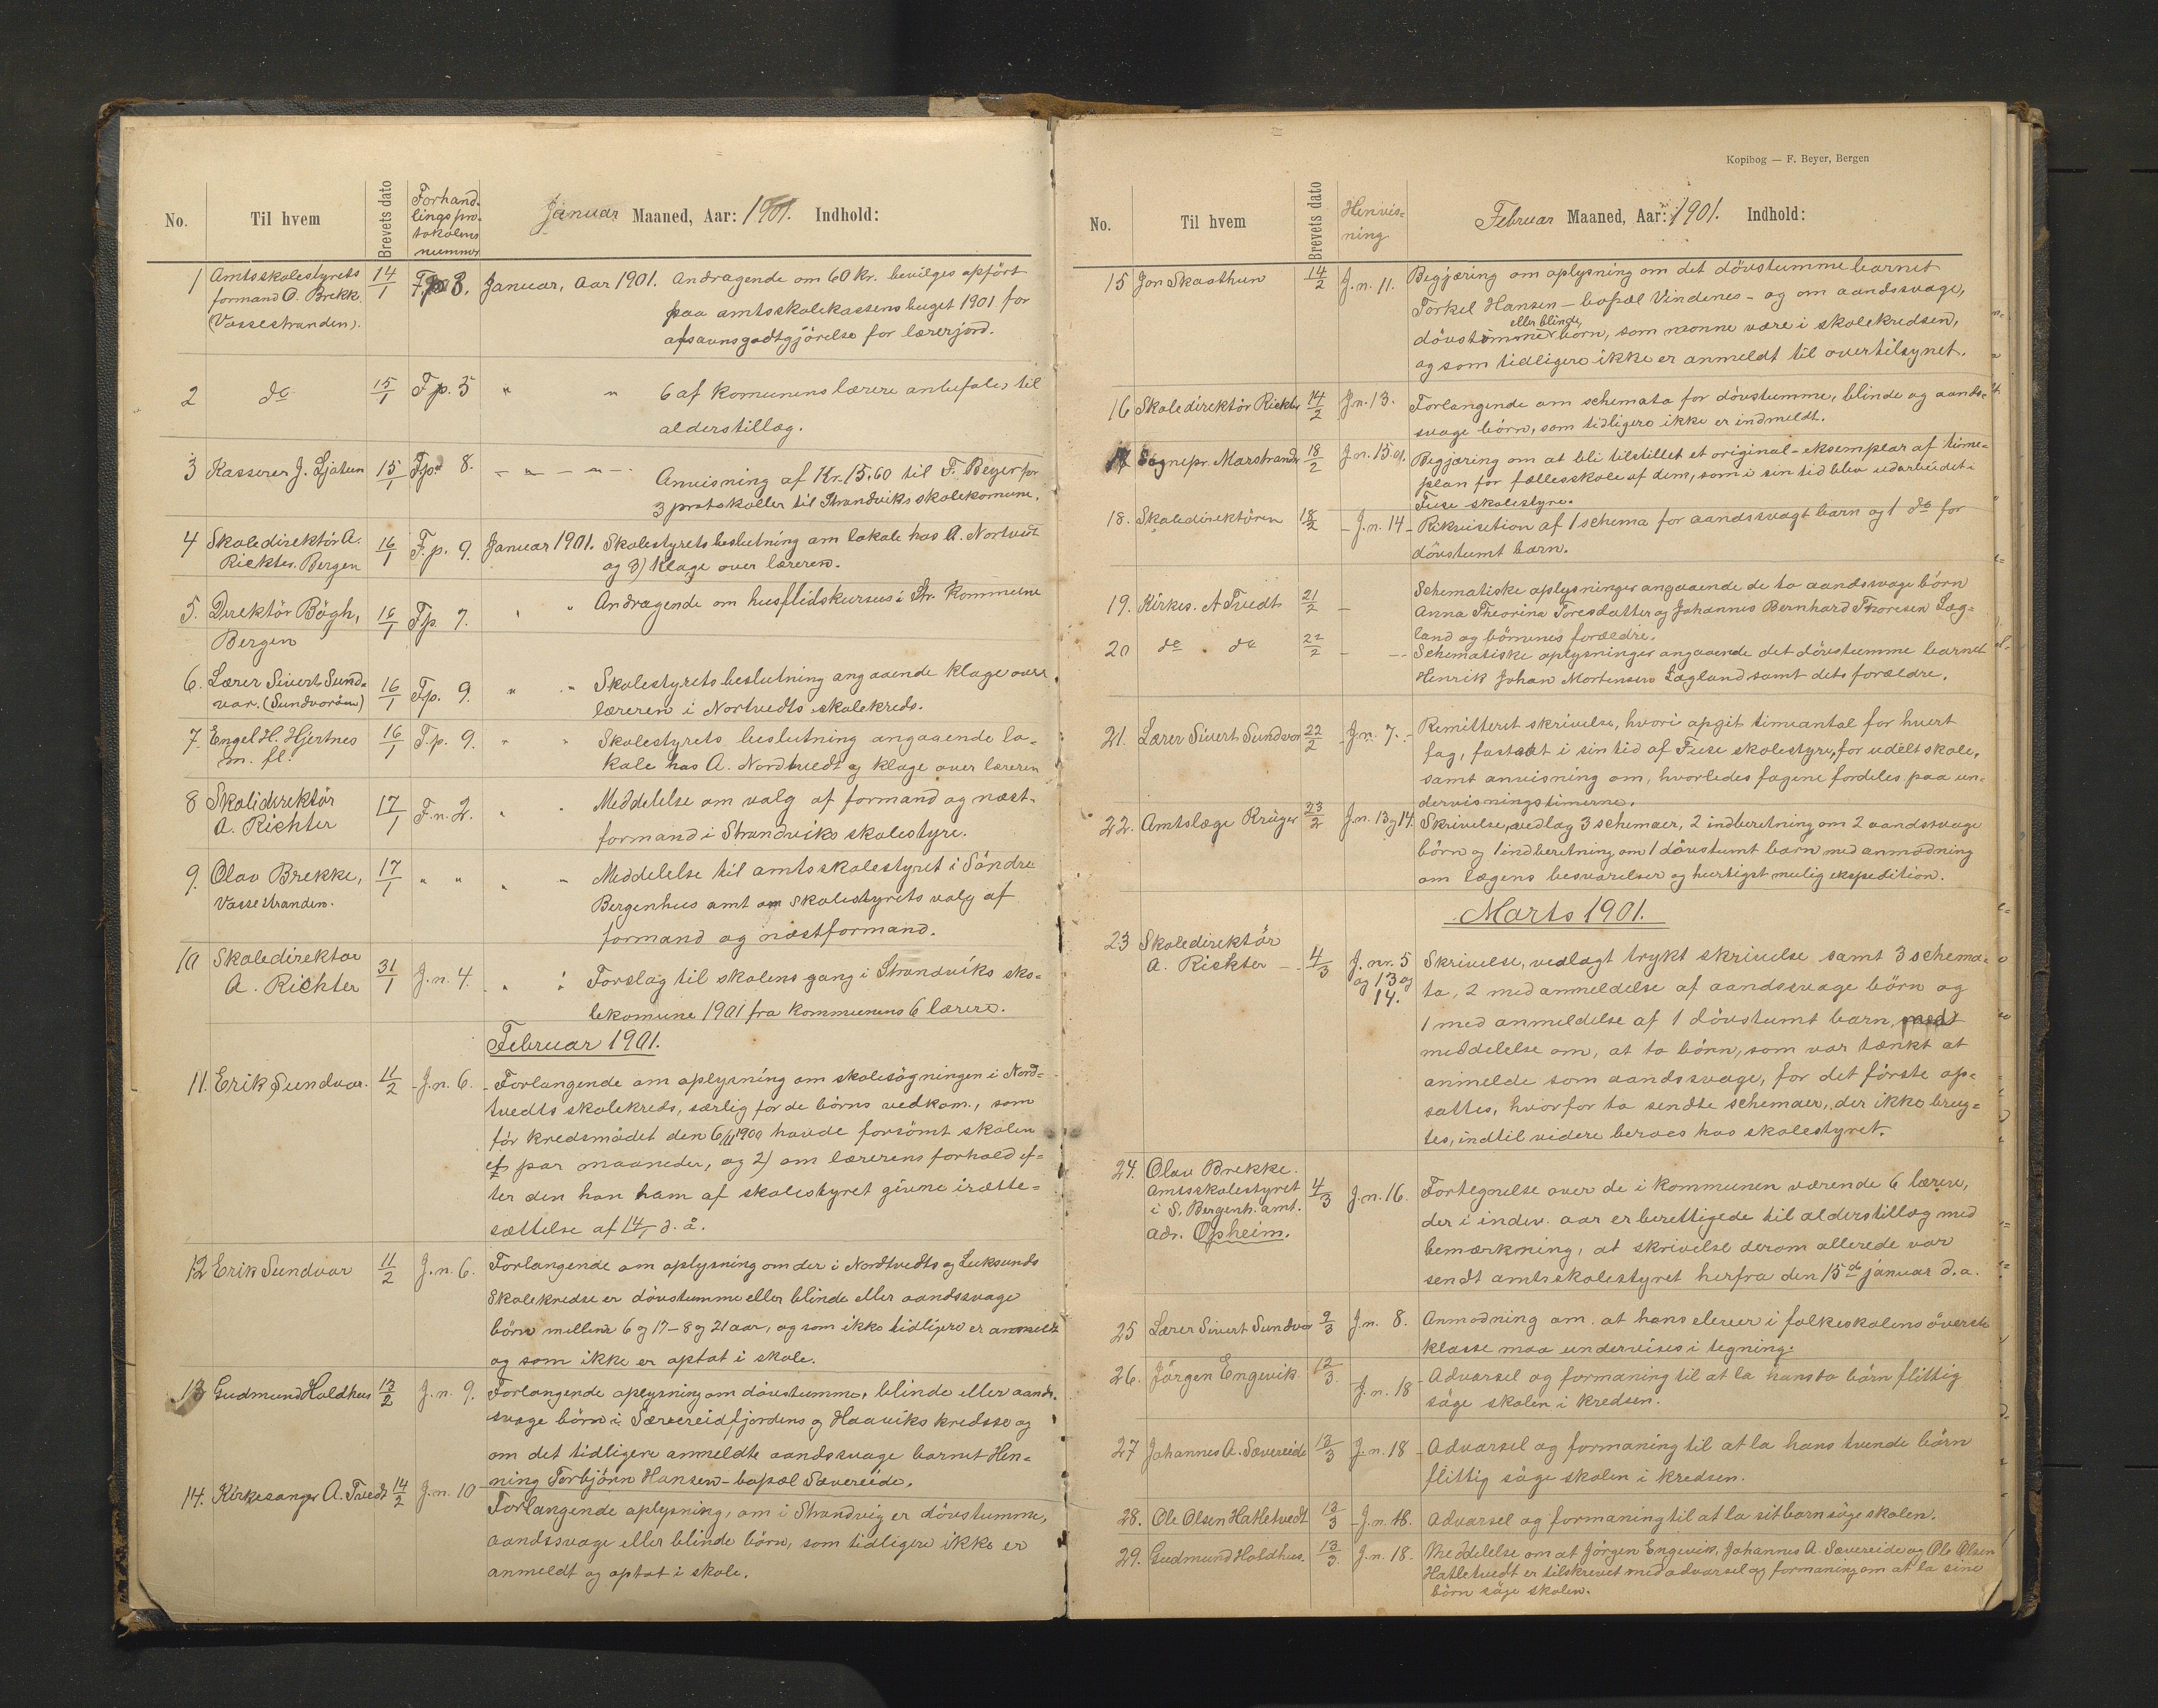 No.
Til hvem
Brevets dato
Forhand-
lingspro-
tokolens
nummer
Januar Maaned, Aar: 1901. Indhold:
1 Amtsskolestyrets 14/1 F.p. 3. Januar, Aar 1901. Andragende om 60 kr. bevilges opført
formand O. Brekk. paa amtsskolekassens buget 1901 for
(Vossestranden). afsavnsgodtgjörelse for lærerjord.
2 do 15/1 F.p. 5 " " 6 af komunens lærere anbefales til
alderstillæg.
3 Kasserer J. Ljotun 15/1 F.p. 8. – " – " – Anvisning af Kr. 15,60 til F. Beyer for
3 protokoller til Strandviks skolekomune.
4 Skoledirektör A. 16/1 F.p. 9. Januar 1901. Skolestyrets beslutning om lokale hos A. Nortvedt
Richter. Bergen og 3) klage over læreren.
5. Direktör Bögh, 16/1 F.p. 7. " " Andragende om husflidskursus i Str. Kommune
Bergen
6. Lærer Sivert Sund- 16/1 F.p. 9. " " Skolestyrets beslutning angaaende klage over
var. (Sundvoröen) læreren i Nortvedts skolekreds.
7. Engel H. Hjertnes 16/1 F.p. 9. " " Skolestyrets beslutning angaaende lo-
m. fl. kale hos A. Nordtvedt og klage over læreren
8 Skoledirektör 17/1 F.n. 2. " " Meddelelse om valg af formand og næst-
A. Richter formand i Strandviks skolestyre.
9. Olav Brekke, 17/1 " " " " Meddelelse til amtsskolestyret i Söndre
Vossestranden. Bergenhus amt om skolestyrets valg af
formand og næstformand.
10 Skoledirektor 31/1 J.n. 4. " " Forslag til skolens gang i Strandviks sko-
A. Richter lekomune 1901 fra kommunens 6 lærere.
Februar 1901.
11. Erik Sundvor. 11/2 J.n. 6. Forlangende om oplysning om skolesögningen i Nord-
tvedts skolekreds, særlig for de börns vedkom., som
för kredsmödet den 6/11 1900 havde forsömt skolen
et par maaneder, og 2) om lærerens forhold ef-
ter den han ham af skolestyret givne irætte-
sættelse af 14/1 d. å.
12 Erik Sundvor 11/2 J.n. 6. Forlangende om oplysning om der i Nordtvedts og Luksunds
skolekredse er dövstumme eller blinde eller aandssvage
börn mellem 6 og 17 – 8 og 21 aar, og som ikke tidligere er anmeldt
og som ikke er optat i skole.
13 Gudmund Holdhus 13/2 J.n. 9. Forlangende oplysning om dövstumme, blinde eller aands-
svage börn i Særereidfjordens og Haaviks kredsse og
om det tidligere anmeldte aandssvage barnet Hen-
ning Torbjörn Hansen – bopæl Sævereide.
14. Kirkesanger A. Tvedt 14/2 J.n. 10 Forlangende oplysning, om i Strandvig er dövstumme,
aandssvage eller blinde börn, som tidligere ikke er
anmeldt og optat i skole.
Kopibog — F. Beyer, Bergen
No.
Til hvem
Brevets dato
Henvis-
ning
Februar Maaned, Aar: 1901. Indhold:
15 Jon Skaathun 14/2 J.n. 11. Begjæring om oplysning om det dövstumme barnet
Torkel Hansen – bopæl Vindenes – og om aandssvage,
eller blinde
dövstumme börn, som monne være i skolekredsen,
og som tidligere ikke er anmeldt til overtilsynet.
16 Skoledirektör Richter 14/2 J.n. 13. Forlangende om schemata for dövstumme, blinde og aands-
svage börn, som tidligere ikke er indmeldt.
17 Sognepr. Marstrander 18/2 J.n. 15 01. Begjæring om at bli tilstillet et original-eksemplar af time-
plan for fællesskole af dem, som i sin tid blev udarbeidet i
Fuse skolestyre.
18. Skoledirektören 18/2 – J.n. 14 – Rekvisition af 1 schema for aandssvagt barn og 1 do for
dövstumt barn.
19. Kirkes. A Tvedt 21/2 – Schematiske oplysninger angaaende de to aandssvage börn
Anna Theorine Toresdatter og Johannes Bernhard Thoresen Læg-
land og börnenes forældre.
20 do do 22/2 – – Schematiske oplysninger angaaende det dövstumme barnet
Henrik Johan Mortensen Lægland samt dets forældre.
21. Lærer Sivert Sundvor 22/2 J.n. 7. – Remitteret skrivelse, hvori opgit timeantal for hvert
fag, fastsat i sin tid af Fuse skolestyre, for udelt skole,
samt anvisning om, hvorledes fagene fordeles paa un-
dervisningstimerne.
22. Amtslæge Krüger 23/2 J.n. 13 og 14. Skrivelse, vedlag 3 schemaer, 2 indberetning om 2 aandssvage
börn og 1 indberetning om 1 dövstumt barn med anmodning
om lægens besvarelser og hurtigst mulig ekspedition.
Marts 1901.
23 Skoledirektör
A. Richter – 4/3 J. nr. 5 Skrivelse, vedlagt trykt skrivelse samt 3 schema-
og 13 og ta, 2 med anmeldelse af aandssvage börn og
14. 1 med anmeldelse af 1 dövstumt barn,
meddelelse om, at to börn, som var tænkt at
anmelde som aandssvage, for det förste op-
sattes, hvorfor to sendte schemaer, der ikke brug-
tes, indtil videre beroes hos skolestyret.
24. Olav Brekke.
Amtsskolestyret 4/3 J.n. 16. Fortegnelse over de i kommunen værende 6 lærere,
i S. Bergenh. amt. der i indev. aar er berettigede til alderstillæg med
adr. Opheim. bemærkning, at skrivelse derom allerede var
sendt amtsskolestyret herfra den 15de januar d.a.
25 Lærer Sivert Sundvor 9/3 J.n. 8. Anmodning om at hans elever i folkeskolens överste
klasse maa undervises i tegning.
26. Jörgen Engevik 12/3. J.n. 18 – Advarsel og formaning til at la hans to börn flittig
söge skolen i kredsen.
27 Johannes A. Sævereide 13/3 J.n. 18 – Advarsel og formaning til at la hans tvende börn
flittig söge skolen i kredsen.
28. Ole Olsen Hatletvedt 13/3 – J.n. 18. Advarsel og formaning til at la sit barn söge skolen.
29. Gudmund Holdhus. 13/3. J.n. 18 – Meddelelse om at Jörgen Engevik, Johannes A. Sævereide og Ole Olsen
Hatletvedt er tilskrevet med advarsel og formaning om at la sine
börn söge skolen.